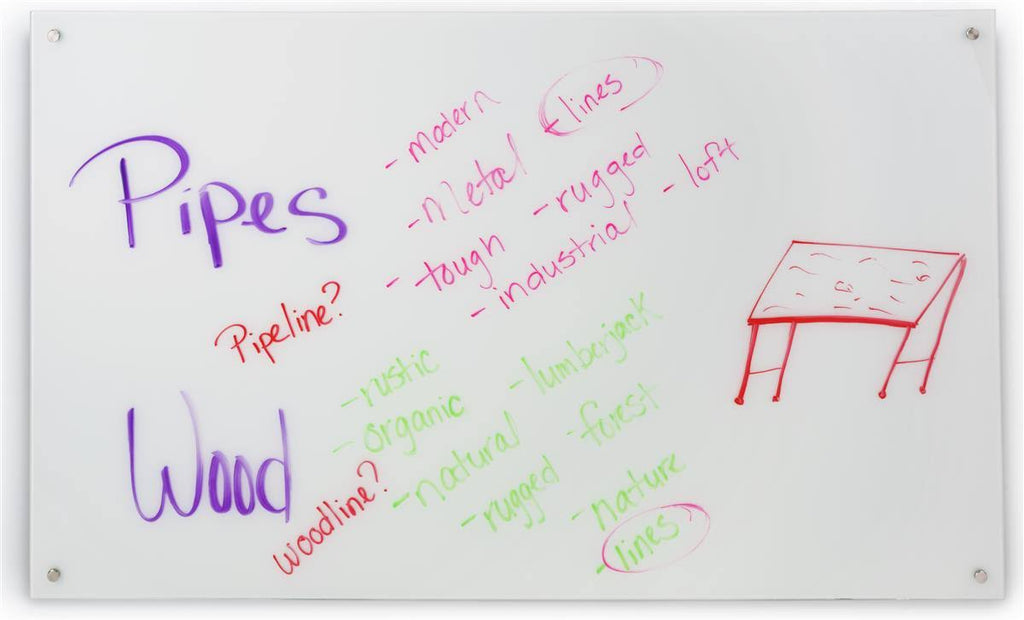 Pipes
- modern
- lines
- metal
- rugged
- loft
- tough
- industrial
Pipeline?
Wood
- rustic
- lumberjack
- organic
- forest
- natural
- nature
- rugged
- lines
woodline?